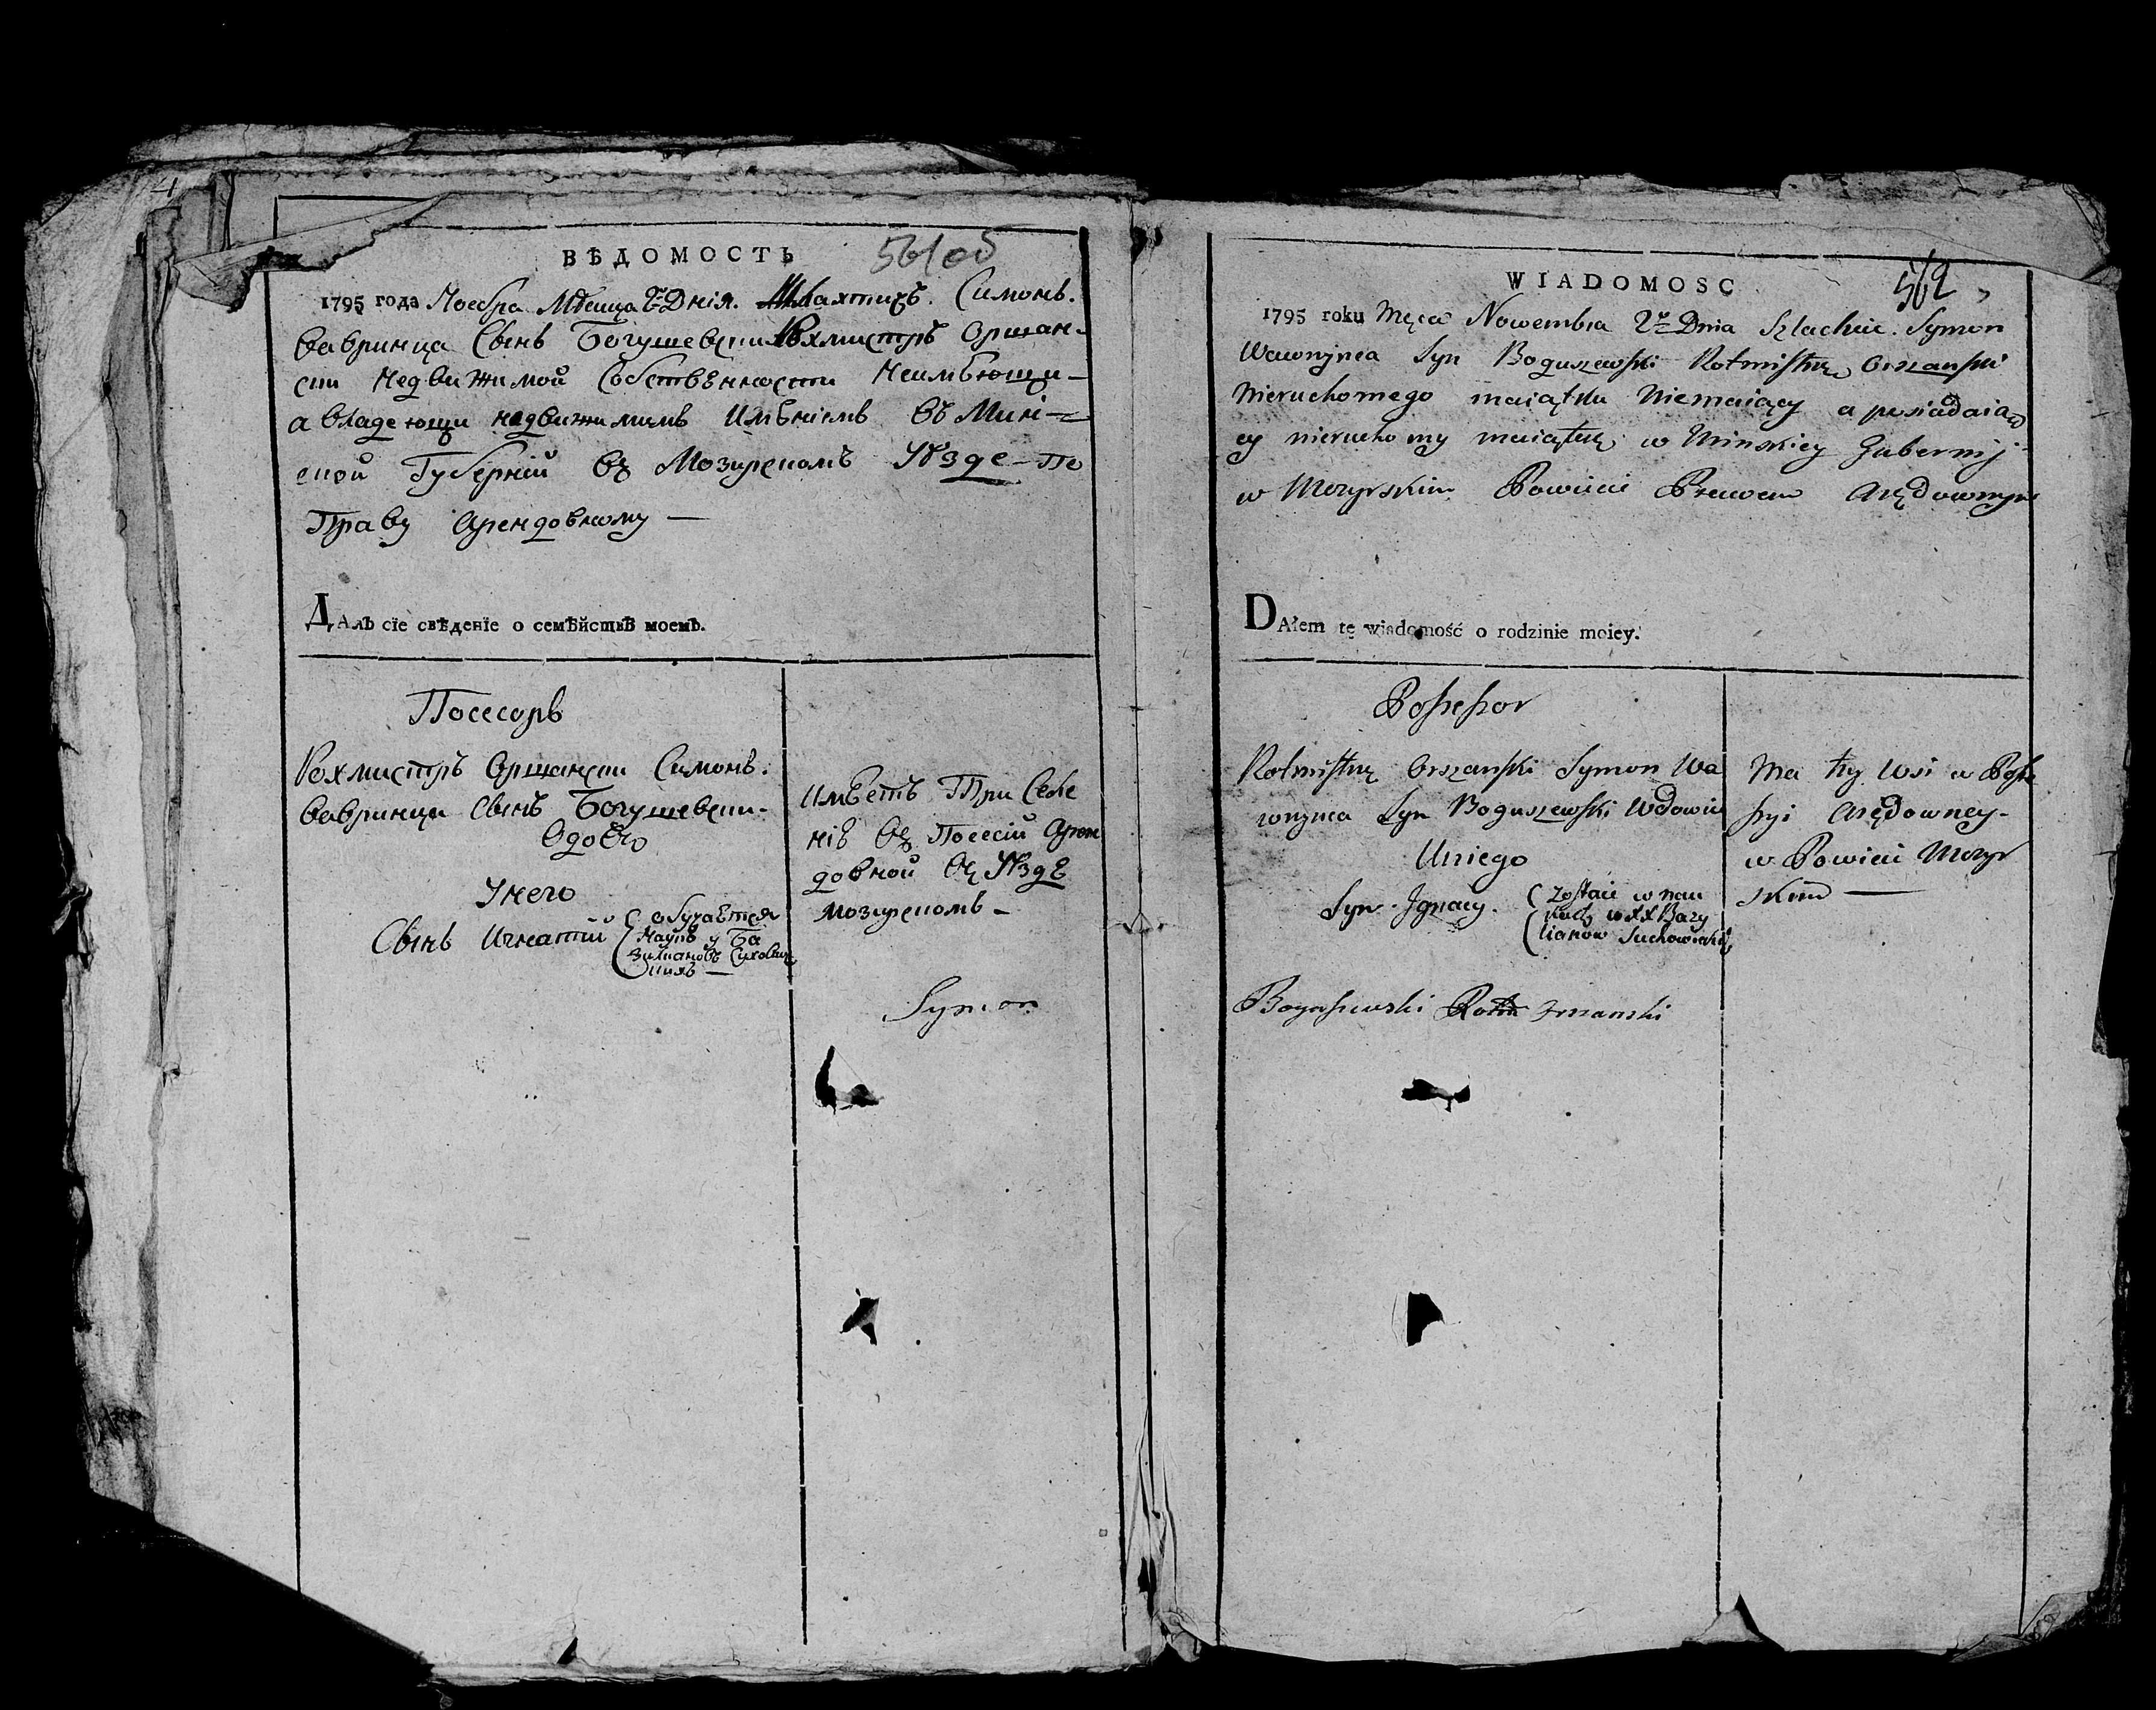 ВѢДОМОСТЬ
561об
1795 года Ноебра Мѣсица 2го Днія. Шлахтицъ. Симонъ.
Вавринца Сынъ Богушевски Рохмистръ Оршан-
ски недвижимой Собственности Неимѣющи-
а владеющи недвижимымъ имѣніемъ въ Мин-
ской Губерніи въ Мозирскомъ Уѣзде По
Праву Арендовному —
ДАлъ сїе свѣденїе о семѣйствѣ моемъ.
Посесоръ
Рохмистръ Оршански Симонъ.
Вавринца Сынъ Богушевски-
Вдовец
Унего
Сынъ Игнатій
обучаѣтся
Наукъ у Ба
зилиановъ
имѣетъ Три Селе
ніѣ въ Посесіи Арен
довной въ Уѣздѣ
мозирскомъ -
Symon
WIADOMOSC
562
1795 roku Męca Nowembra 2go Dnia Szlachcic. Symon
Wawrzynca Syn Boguszewski Rotmistrz Orszanski
Nieruchomego maiątku Niemaiący a posiadaią
cy nieruchomy maiątek w Minskiey Gubernij
w Mozyrskim Powiecie Prawem Arędownym
DAłem tę wiadomość o rodzinie moiey.
Possessor
Rotmistrz Orszanski Symon Wa
wrzynca Syn Boguszewski Wdowiec
Uniego
Syn Jgnacy.
zostaie w nau
kach u XX Bazy
lianow Suchowickich
Ma trzy Wsi w Posse
ssyi Arędowney-
w Powiecie Mozyr
skim —
Boguszewski Rotm Orszanski